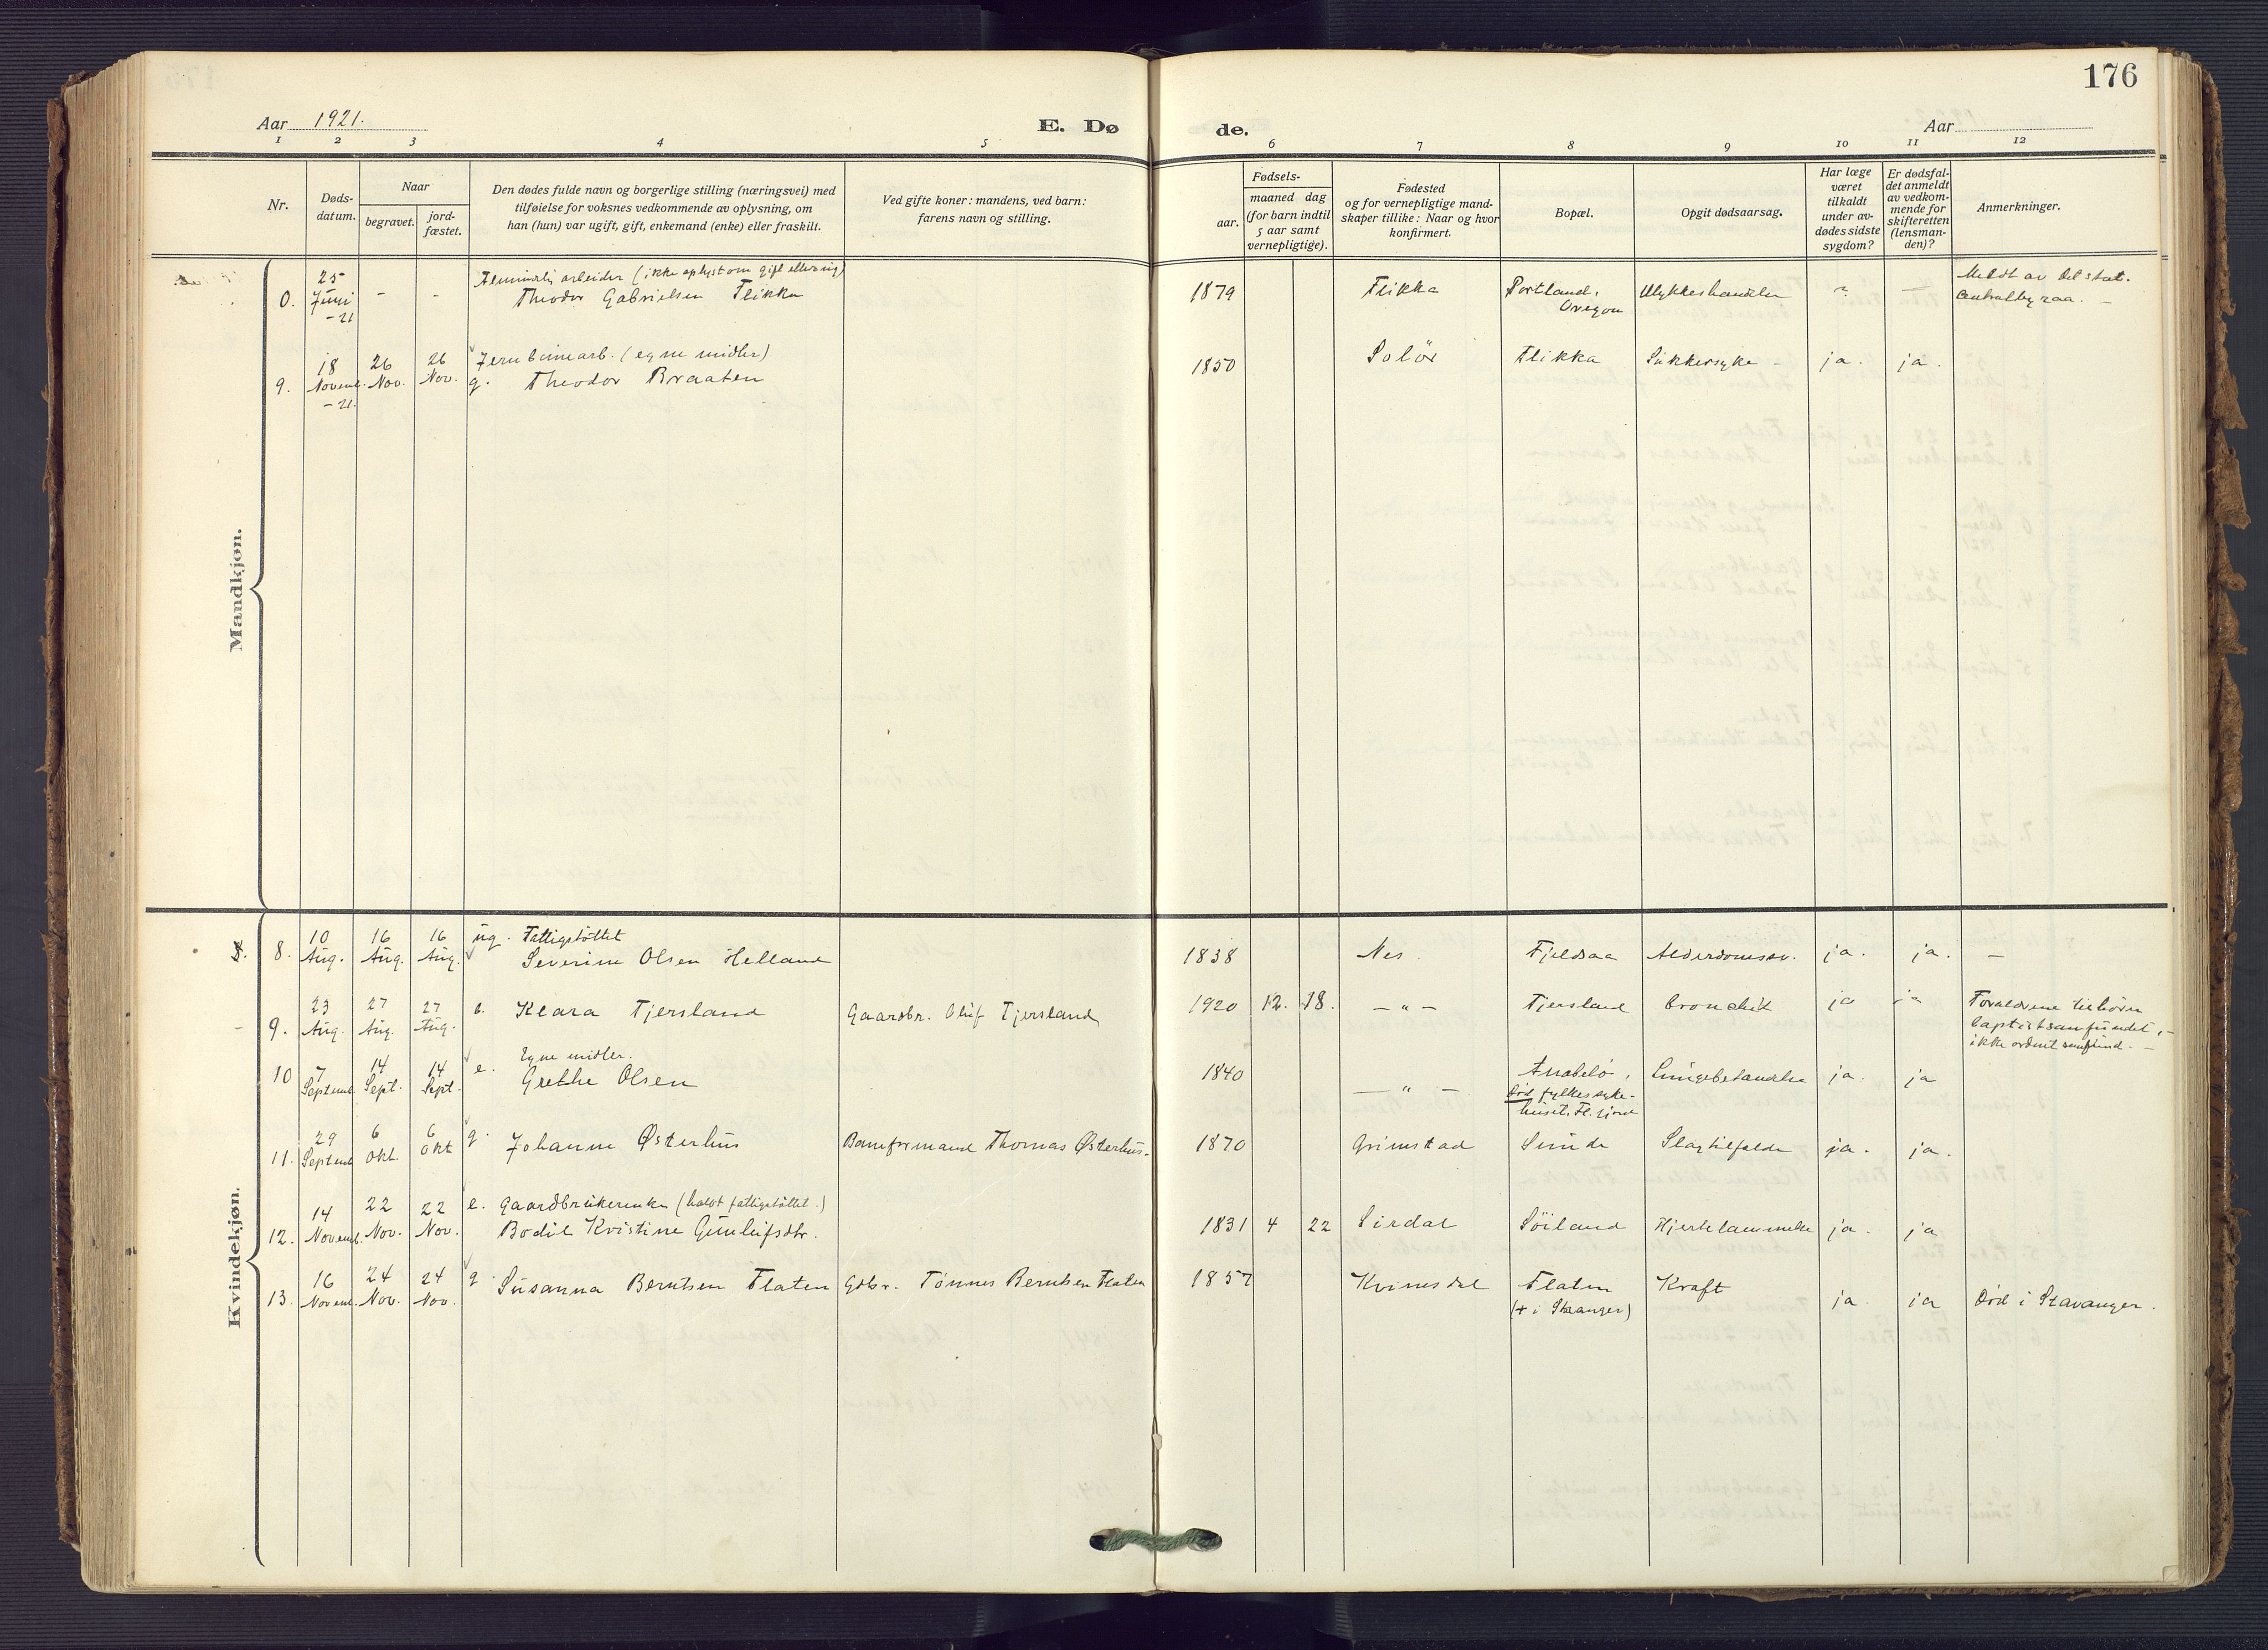 176
Aar 1921.
E. Dø
de.
Aar
1 2 3 4 5 6 7 8 9 10 11 12
Nr.
Døds-
datum.
Naar
begravet.
jord-
fæstet.
Den dødes fulde navn og borgerlige stilling (næringsvei) med
tilføielse for voksnes vedkommende av oplysning, om
han (hun) var ugift, gift, enkemand (enke) eller fraskilt.
Ved gifte koner: mandens, ved barn:
farens navn og stilling.
Fødsels-
aar.
maaned dag
(for barn indtil
5 aar samt
vernepligtige).
Fødested
og for vernepligtige mand-
skaper tillike: Naar og hvor
konfirmert.
Bopæl.
Opgit dødsaarsag.
Har læge
været
tilkaldt
under av-
dødes sidste
sygdom?
Er dødsfal-
det anmeldt
av vedkom-
mende for
skifteretten
(lensman-
den)?
Anmerkninger.
Mandkjøn.
0. 25 Juni -21 - - arbeider (ikke oplyst om gift eller ug)
Theodor Gabrielsen Flikka 1879 Flikka Portland, Oregon Ulykkeshændelse ? — Meldt av det stat.
Centralbyraa. —
9. 18 Novemb. -21. 26 Nov. 26 Nov. Jernbanearb. (egne midler)
g. Theodor Braaten 1850 Solör Flikka Sukkersyke - ja. ja.
Kvindekjøn.
8. 10 Aug. 16 Aug. 16 Aug. ug. Fattigstöttet
Severine Olsen Helland 1838 Nes. Fjeldsaa Alderdomssv. ja. ja. —
9. 23 Aug. 27 Aug. 27 Aug. b. Klara Tjersland Gaardbr. Oluf Tjersland 1920 12. 18. — " — Tjersland bronchit ja ja Forældrene tilhører
baptistsamfundet, -
ikke ordnet samfund. —
10 7 Septemb 14 Sept. 14 Sept. e. Egne midler.
Grethe Olsen 1840 — " — Anabelö,
Død fylkessyke-
huset, Fl.fjord Lungebetændelse ja. ja
11. 29 Septemb 6 Okt. 6 Okt g. Johanne Østerhus Baneformand Thomas Østerhus. 1870 Grimstad Sunde Slagtilfælde ja. ja.
12. 14 Novemb. 22 Nov. 22 Nov. e. Gaardbrukerenke (halvt fattigstöttet.)
Bodil Kristine Gunleifsdtr. 1831 4 22 Sirdal Söiland Hjertelammelse ja. ja
13. 16 Novemb. 24 Nov. 24 Nov. g Susanna Berntsen Flaten Gdbr. Tönnes Berntsen Flaten 1857 Kvinesdal Flaten
(+ i Stavanger) Kræft ja. ja Død i Stavanger.